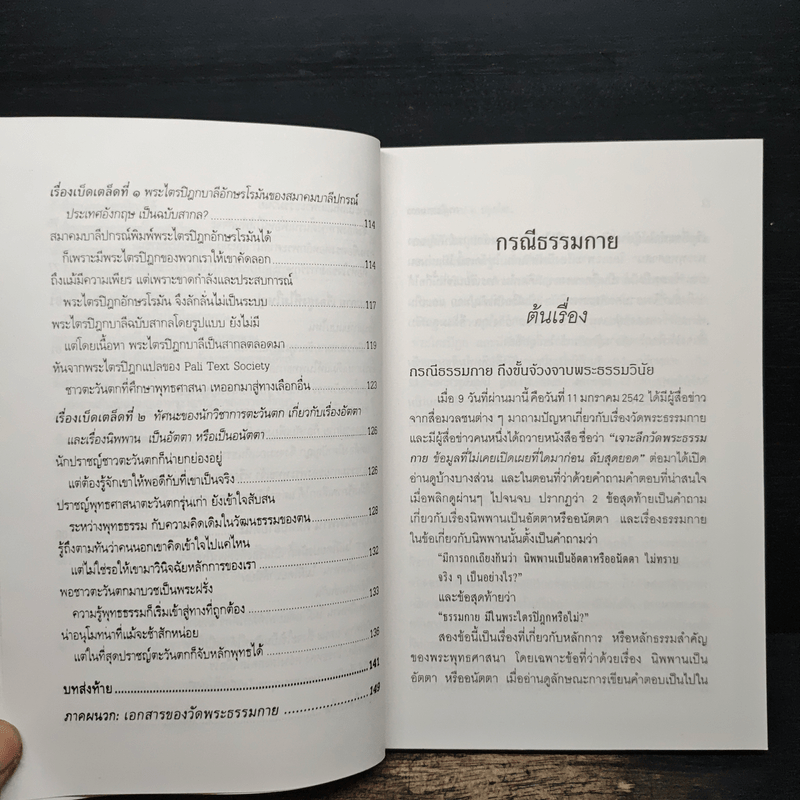 เรื่องเบ็ดเตล็ดที่ ๑ พระไตรปิฎกบาลีอักษรโรมันของสมาคมบาลีปกรณ์
ประเทศอังกฤษ เป็นฉบับสากล? 114
สมาคมบาลีปกรณ์พิมพ์พระไตรปิฎกอักษรโรมันได้
ก็เพราะมีพระไตรปิฎกของพวกเราให้เขาคัดลอก 114
ถึงแม้มีความเพียร แต่เพราะขาดกำลังและประสบการณ์
พระไตรปิฎกอักษรโรมัน จึงลักลั่นไม่เป็นระบบ 117
พระไตรปิฎกบาลีฉบับสากลโดยรูปแบบ ยังไม่มี
แต่โดยเนื้อหา พระไตรปิฎกบาลีเป็นสากลตลอดมา 119
หันจากพระไตรปิฎกแปลของ Pali Text Society
ชาวตะวันตกที่ศึกษาพุทธศาสนา เหออกมาสู่ทางเลือกอื่น 123
เรื่องเบ็ดเตล็ดที่ ๒ ทัศนะของนักวิชาการตะวันตก เกี่ยวกับเรื่องอัตตา
และเรื่องนิพพาน เป็นอัตตา หรือเป็นอนัตตา 126
นักปราชญ์ชาวตะวันตกก็น่ายกย่องอยู่
แต่ต้องรู้จักเขาให้พอดีกับที่เขาเป็นจริง 126
ปราชญ์พุทธศาสนาตะวันตกรุ่นเก่า ยังเข้าใจสับสน
ระหว่างพุทธธรรม กับความคิดเดิมในวัฒนธรรมของตน 128
รู้ถึงตามทันว่าคนนอกเขาคิดเข้าใจไปแค่ไหน
แต่ไม่ใช่รอให้เขามาวินิจฉัยหลักการของเรา 132
พอชาวตะวันตกมาบวชเป็นพระฝรั่ง
ความรู้พุทธธรรมก็เริ่มเข้าสู่ทางที่ถูกต้อง 133
น่าอนุโมทนาที่แม้จะช้าสักหน่อย
แต่ในที่สุดปราชญ์ตะวันตกก็จับหลักพุทธได้ 136
บทส่งท้าย 141
ภาคผนวก: เอกสารของวัดพระธรรมกาย 149
กรณีธรรมกาย
ต้นเรื่อง
กรณีธรรมกาย ถึงขั้นจ้วงจาบพระธรรมวินัย
เมื่อ 9 วันที่ผ่านมานี้ คือวันที่ 11 มกราคม 2542 ได้มีผู้สื่อข่าว
จากสื่อมวลชนต่าง ๆ มาถามปัญหาเกี่ยวกับเรื่องวัดพระธรรมกาย
และมีผู้สื่อข่าวคนหนึ่งได้ถวายหนังสือ ชื่อว่า “เจาะลึกวัดพระธรรม
กาย ข้อมูลที่ไม่เคยเปิดเผยที่ใดมาก่อน ลับสุดยอด” ต่อมาได้เปิด
อ่านดูบ้างบางส่วน และในตอนที่ว่าด้วยคำถามคำตอบที่น่าสนใจ
เมื่อพลิกดูผ่านๆ ไปจนจบ ปรากฏว่า 2 ข้อสุดท้ายเป็นคำถาม
เกี่ยวกับเรื่องนิพพานเป็นอัตตาหรืออนัตตา และเรื่องธรรมกาย
ในข้อเกี่ยวกับนิพพานนั้นตั้งเป็นคำถามว่า
“มีการถกเถียงกันว่า นิพพานเป็นอัตตาหรืออนัตตา ไม่ทราบ
จริง ๆ เป็นอย่างไร?”
และข้อสุดท้ายว่า
“ธรรมกาย มีในพระไตรปิฎกหรือไม่?”
สองข้อนี้เป็นเรื่องที่เกี่ยวกับหลักการ หรือหลักธรรมสำคัญ
ของพระพุทธศาสนา โดยเฉพาะข้อที่ว่าด้วยเรื่อง นิพพานเป็น
อัตตา หรืออนัตตา เมื่ออ่านดูลักษณะการเขียนคำตอบเป็นไปใน